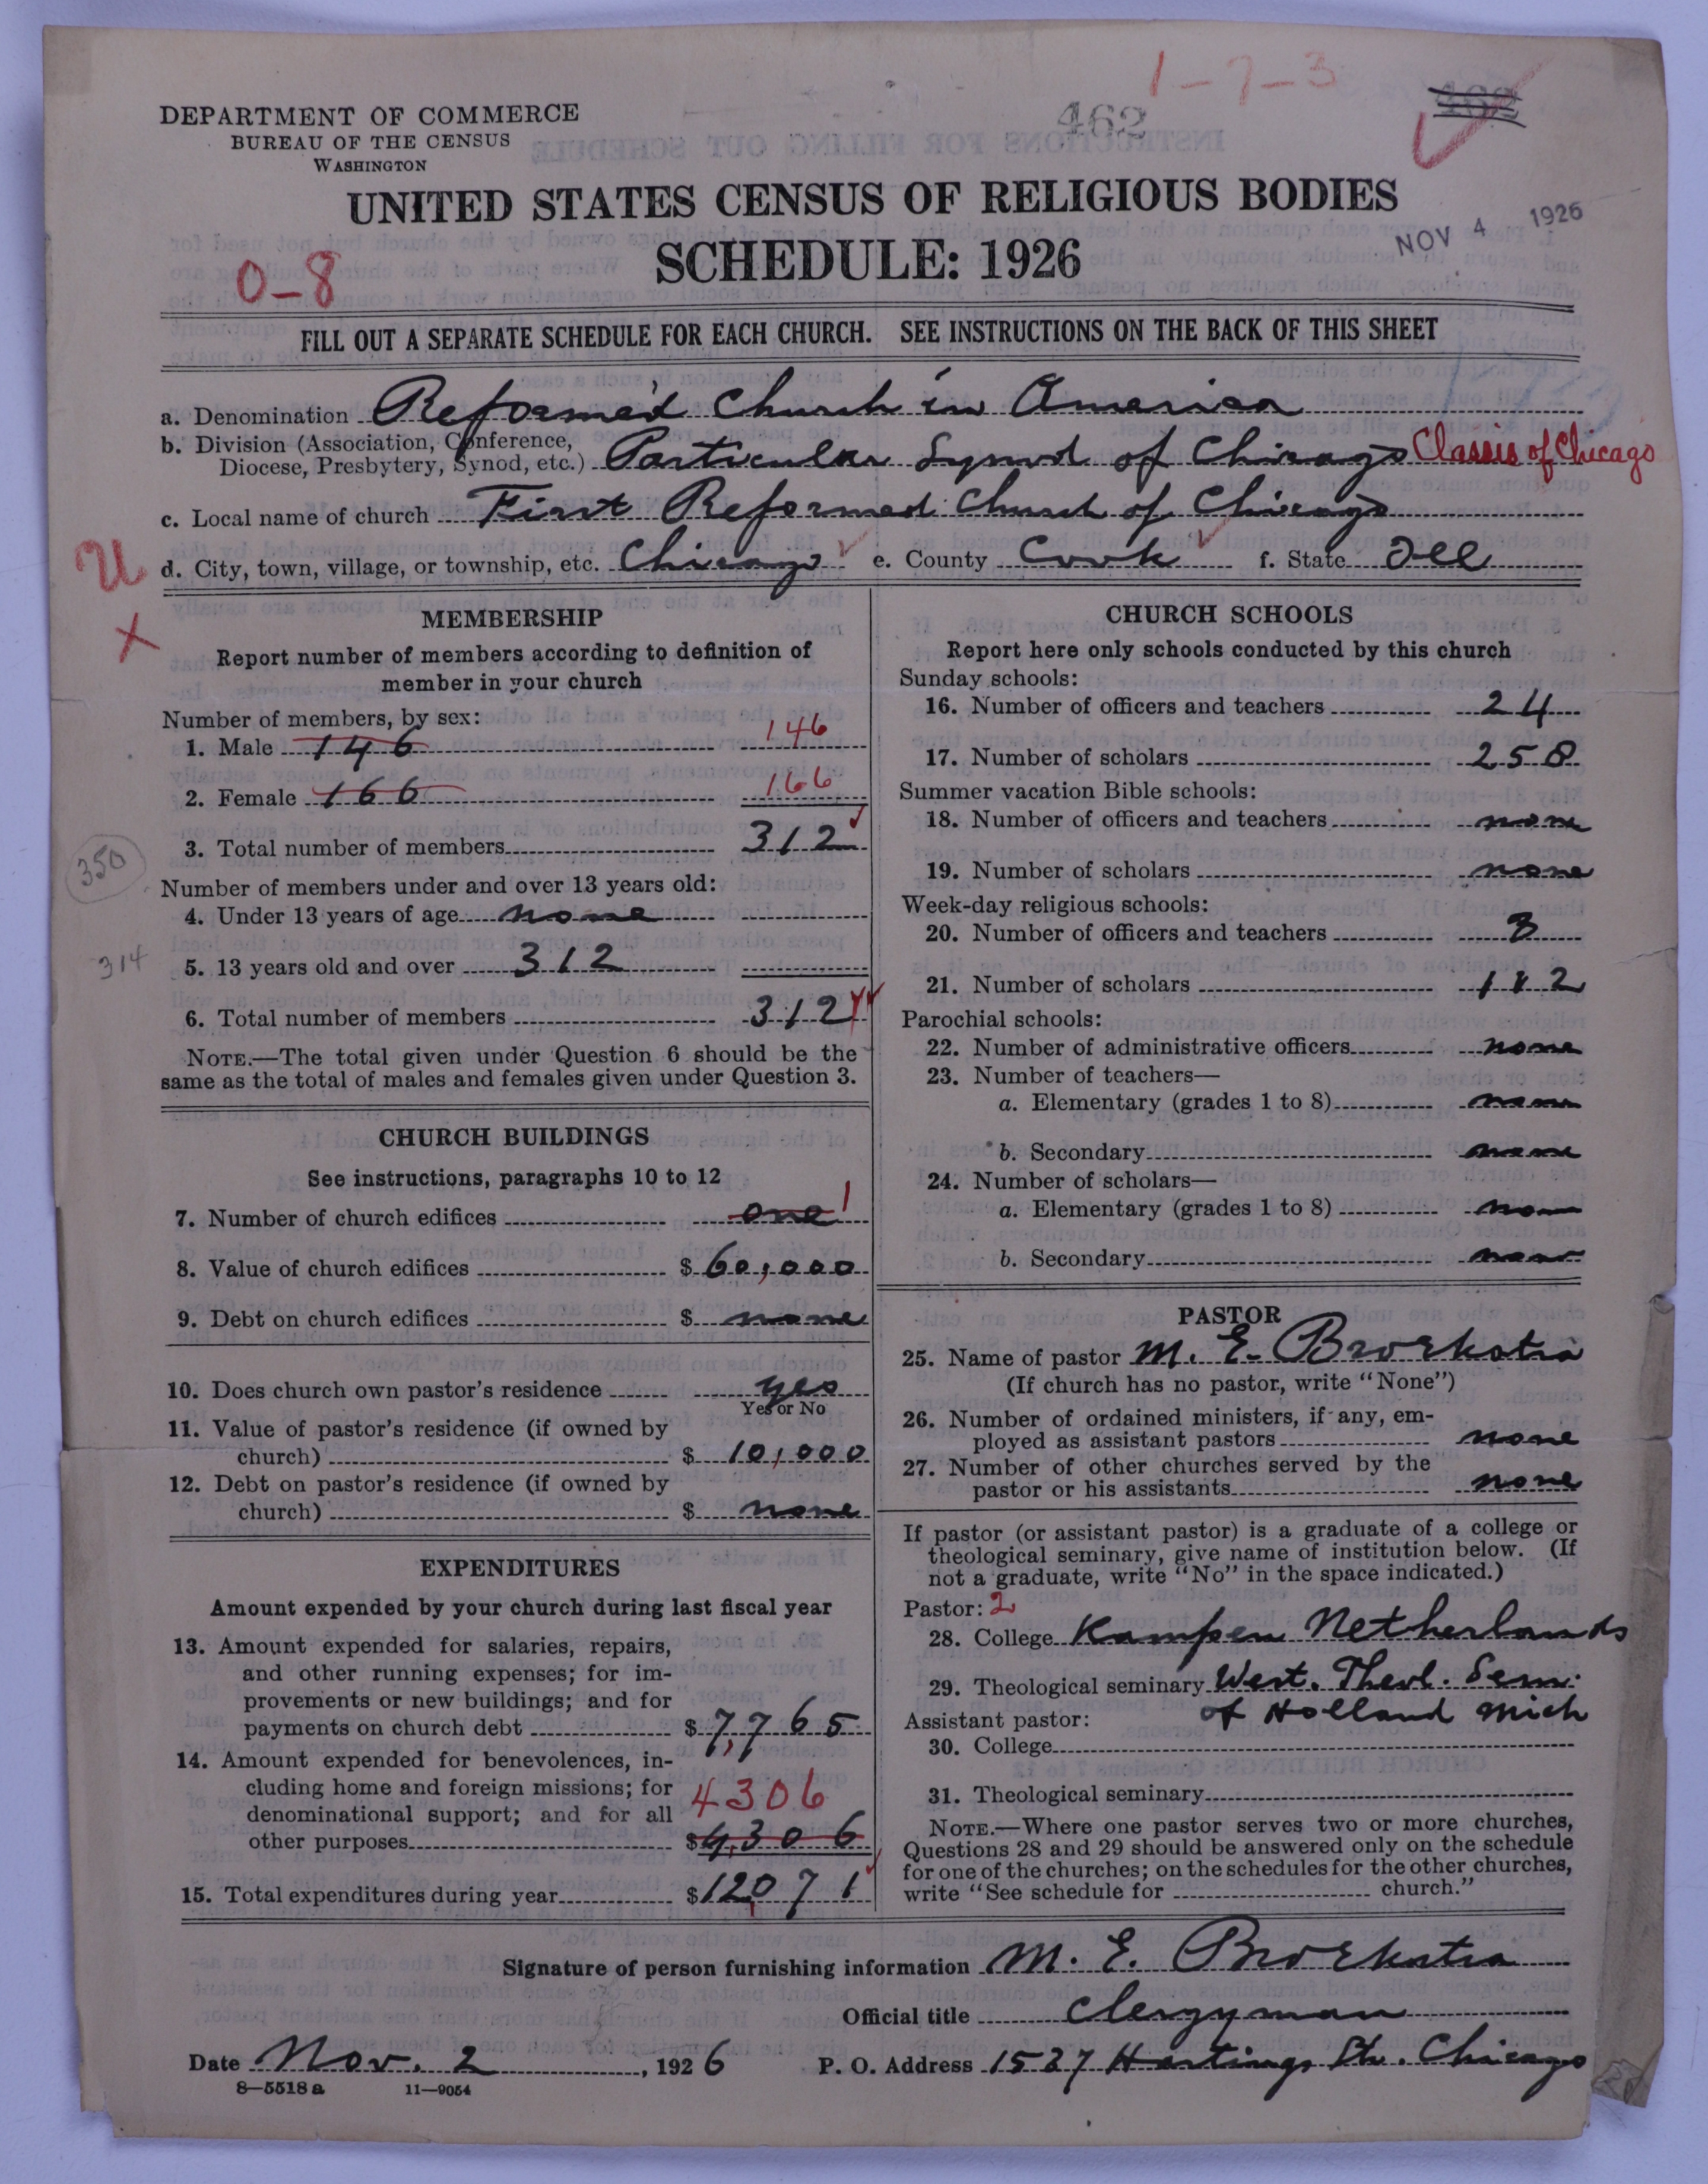 1-7-3
462
DEPARTMENT OF COMMERCE
BUREAU OF THE CENSUS
WASHINGTON
UNITED STATES CENSUS OF RELIGIOUS BODIES
NOV 4 1926
SCHEDULE: 1926
0-8
FILL OUT A SEPARATE SCHEDULE FOR EACH CHURCH. SEE INSTRUCTIONS ON THE BACK OF THIS SHEET
a. Denomination Reformed Church in America
b. Division (Association, Conference,
Diocese, Presbytery, Synod, etc.) Particular Synod of Chicago Classis of Chicago
c. Local name of church First Reformed Church of Chicago
d. City, town, village, or township, etc. Chicago e. County Cook f. State Ill
U
X
MEMBERSHIP
Report number of members according to definition of
member in your church
Number of members, by sex:
1. Male 146 146
2. Female 166 166
3. Total number of members 312
350
Number of members under and over 13 years old:
4. Under 13 years of age none
5. 13 years old and over 312
314
6. Total number of members 312
NOTE.—The total given under Question 6 should be the
same as the total of males and females given under Question 3.
CHURCH BUILDINGS
See instructions, paragraphs 10 to 12
7. Number of church edifices one 1
8. Value of church edifices $ 60,000
9. Debt on church edifices $ none
10. Does church own pastor's residence yes
Yes or No
11. Value of pastor's residence (if owned by
church) $ 10,000
12. Debt on pastor's residence (if owned by
church) $ none
EXPENDITURES
Amount expended by your church during last fiscal year
13. Amount expended for salaries, repairs,
and other running expenses; for im-
provements or new buildings; and for
payments on church debt $ 7,765
14. Amount expended for benevolences, in-
cluding home and foreign missions; for
denominational support; and for all
other purposes $ 4,306
4306
15. Total expenditures during year $ 12,071
CHURCH SCHOOLS
Report here only schools conducted by this church
Sunday schools:
16. Number of officers and teachers 24
17. Number of scholars 258
Summer vacation Bible schools:
18. Number of officers and teachers none
19. Number of scholars none
Week-day religious schools:
20. Number of officers and teachers 3
21. Number of scholars 112
Parochial schools:
22. Number of administrative officers none
23. Number of teachers—
a. Elementary (grades 1 to 8) none
b. Secondary none
24. Number of scholars—
a. Elementary (grades 1 to 8) none
b. Secondary none
PASTOR
25. Name of pastor M. E. Broekstra
(If church has no pastor, write "None")
26. Number of ordained ministers, if any, em-
ployed as assistant pastors none
27. Number of other churches served by the
pastor or his assistants none
If pastor (or assistant pastor) is a graduate of a college or
theological seminary, give name of institution below. (If
not a graduate, write "No" in the space indicated.)
Pastor: 2
28. College Kampen Netherlands
29. Theological seminary West. Theol. Sem.
of Holland Mich
Assistant pastor:
30. College
31. Theological seminary
NOTE.—Where one pastor serves two or more churches,
Questions 28 and 29 should be answered only on the schedule
for one of the churches; on the schedules for the other churches,
write "See schedule for church."
Signature of person furnishing information M. E. Broekstra
Official title Clergyman
Date Nov. 2, 1926 P. O. Address 1527 Hastings Str. Chicago
8—5518 a 11—9054